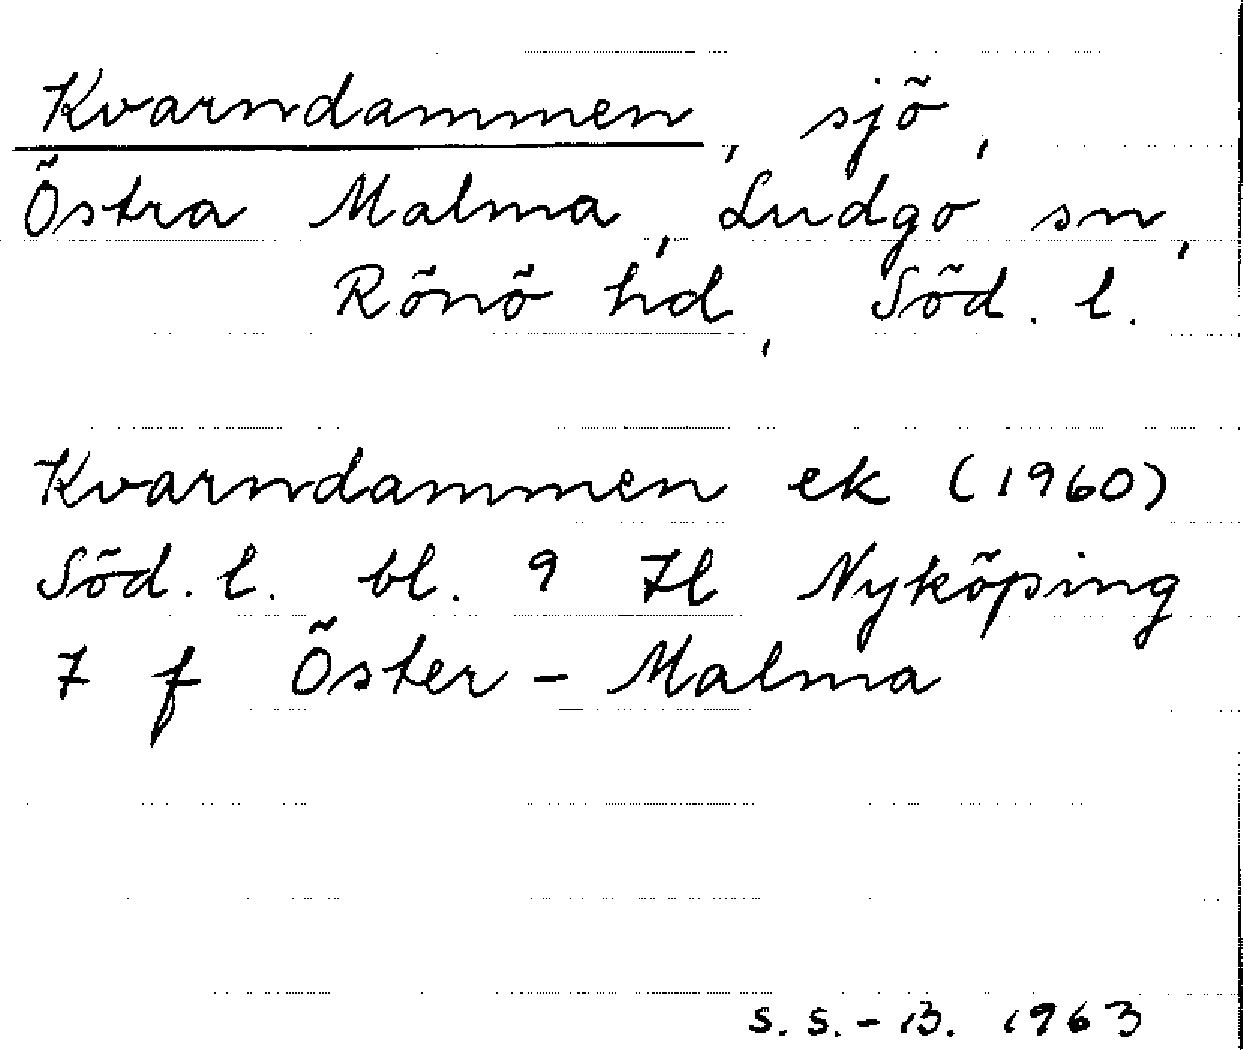 Kvarndammen, sjö,
Östra Malma, Ludgo sn,
Rönö hd, Söd. l.
Kvarndammen ek (1960)
Söd. l. bl. 9 Il Nyköping
7 f Öster-Malma
S. S.-B. 1963